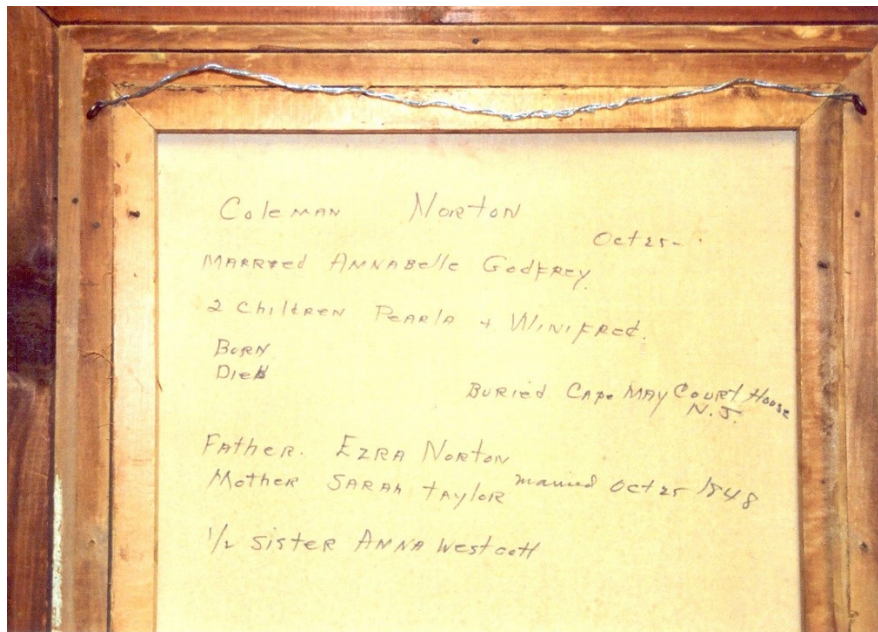 Coleman Norton
Oct 25-
Married Annabelle Godfrey.
2 Children Pearla + Winifred.
Born
Died
Buried Cape May Court House
N.J.
Father. Ezra Norton
Mother Sarah Taylor married Oct 25 1848
1/2 Sister Anna Westcott